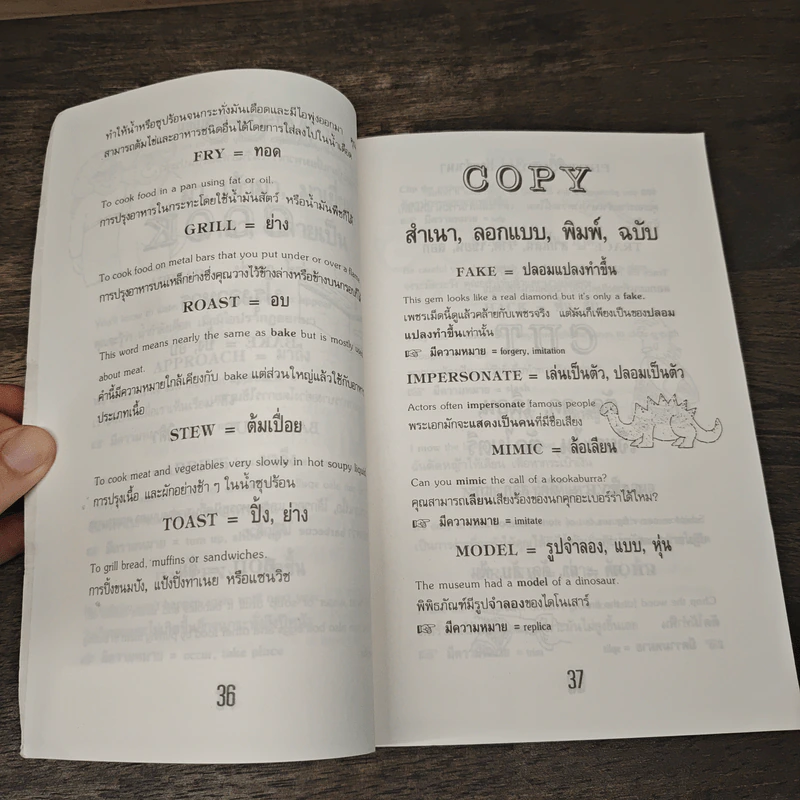 ทำให้น้ำหรือซุปร้อนจนกระทั่งมันเดือดและมีไอพุ่งออกมา
สามารถต้มไข่และอาหารชนิดอื่นได้โดยการใส่ลงไปในน้ำเดือด
FRY = ทอด
To cook food in a pan using fat or oil.
การปรุงอาหารในกระทะโดยใช้น้ำมันสัตว์ หรือน้ำมันพืชก็ได้
GRILL = ย่าง
To cook food on metal bars that you put under or over a
การปรุงอาหารบนเหล็กย่างซึ่งคุณวางไว้ข้างล่างหรือข้างบน
ROAST = อบ
This word means nearly the same as bake but is mostly
about meat.
คำนี้มีความหมายใกล้เคียงกับ bake แต่ส่วนใหญ่แล้วใช้กับอาหาร
ประเภทเนื้อ
STEW = ต้มเปื่อย
To cook meat and vegetables very slowly in hot soupy liquid.
การปรุงเนื้อ และผักอย่างช้า ๆ ในน้ำซุปร้อน
TOAST = ปิ้ง, ย่าง
To grill bread, muffins or sandwiches.
การปิ้งขนมปัง, แป้งปิ้งทาเนย หรือแซนวิช
36
COPY
สำเนา, ลอกแบบ, พิมพ์, ฉบับ
FAKE = ปลอมแปลงทำขึ้น
This gem looks like a real diamond but it's only a fake.
เพชรเม็ดนี้ดูแล้วคล้ายกับเพชรจริง แต่มันก็เพียงเป็นของปลอม
แปลงทำขึ้นเท่านั้น
☞ มีความหมาย = forgery, imitation
IMPERSONATE = เล่นเป็นตัว, ปลอมเป็นตัว
Actors often impersonate famous people
พระเอกมักจะแสดงเป็นคนที่มีชื่อเสียง
MIMIC = ล้อเลียน
Can you mimic the call of a kookaburra?
คุณสามารถเลียนเสียงร้องของนกคุกอะเบอร์ร่าได้ไหม?
☞ มีความหมาย = imitate
MODEL = รูปจำลอง, แบบ, หุ่น
The museum had a model of a dinosaur.
พิพิธภัณฑ์มีรูปจำลองของไดโนเสาร์
☞ มีความหมาย = replica
37